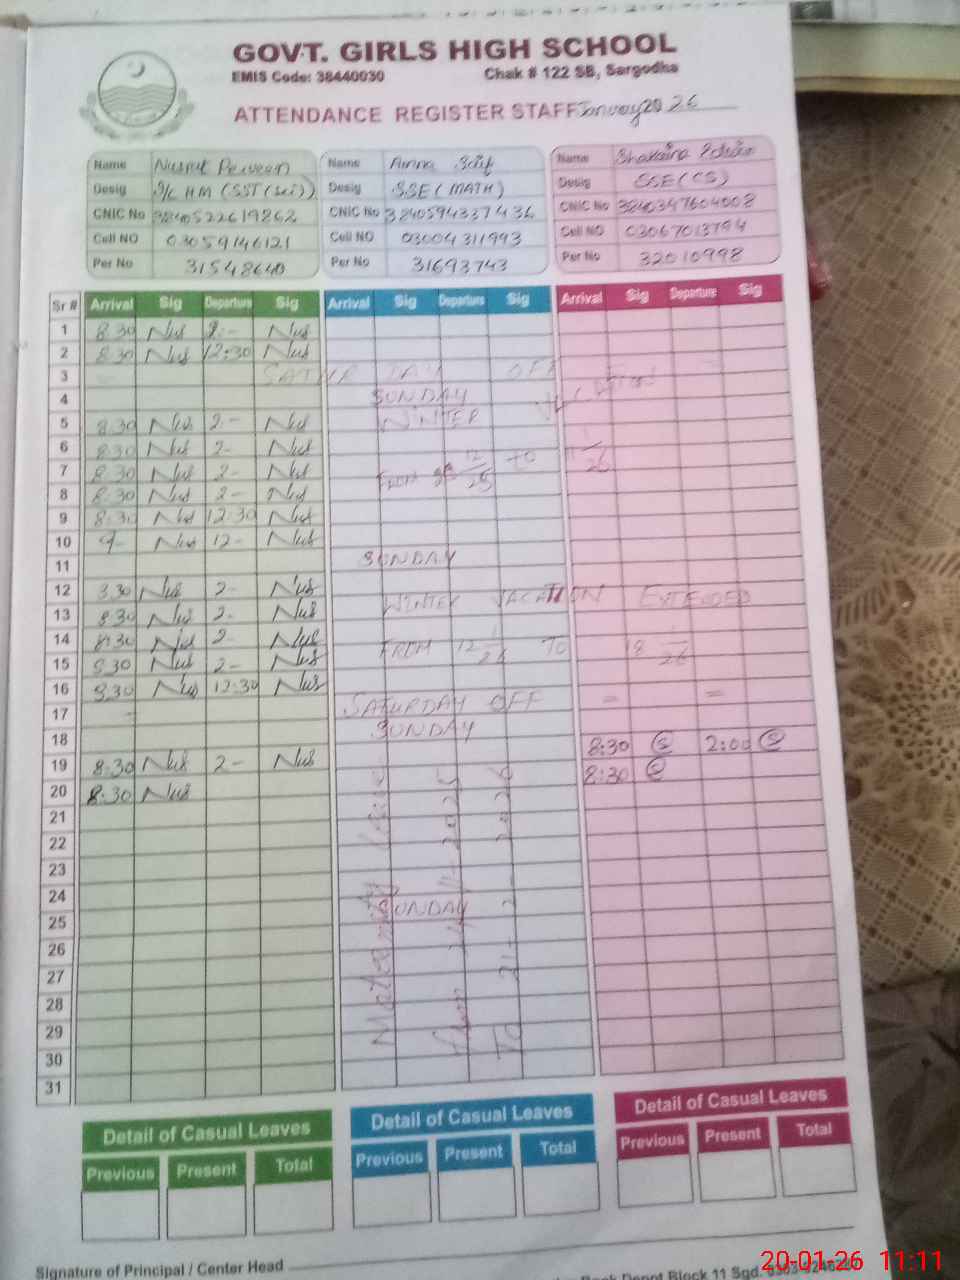 GOVT. GIRLS HIGH SCHOOL
EMIS Code: 38440030 Chak # 122 SB, Sargodha
ATTENDANCE REGISTER STAFF January 2026
Name Nusrat Perveen Name Amna Name Shakaina
Desig I/C HM (SST(Sci)) Desig SSE (MATH) Desig SSE (CS)
CNIC No 3840522619862 CNIC No 3840594337436 CNIC No 3840347604008
Cell NO 03059146121 Cell NO 03004311993 Cell NO 03067013794
Per No 31548640 Per No 31693743 Per No 32010998
Sr # Arrival Sig Departure Sig Arrival Sig Departure Sig Arrival Sig Departure Sig
1 8:30 Nus 2:- Nus
2 8:30 Nus 12:30 Nus
3 SATUR DAY OFF
4 SUNDAY
5 8:30 Nus 2- Nus WINTER VACATION
6 8:30 Nus 2- Nus
7 8:30 Nus 2- Nus FROM 12/25 TO 1/26
8 8:30 Nus 2- Nus
9 8:30 Nus 12:30 Nus
10 9- Nus 12- Nus
11 SUNDAY
12 8:30 Nus 2- Nus WINTER VACATION EXTENDED
13 8:30 Nus 2- Nus
14 8:30 Nus 2- Nus FROM 12 1/26 TO 18 1/26
15 8:30 Nus 2- Nus
16 8:30 Nus 12:30 Nus
17 - SATURDAY OFF = =
18 SUNDAY
19 8:30 Nus 2- Nus 8:30 S 2:00 S
20 8:30 Nus 8:30 S
21
22
23
24
25 SUNDAY
26
27
28
29
30
31
Maternity Leave
From 11-2025
To 21-2-2026
Detail of Casual Leaves Detail of Casual Leaves Detail of Casual Leaves
Previous Present Total Previous Present Total Previous Present Total
Signature of Principal / Center Head
Book Depot Block 11 Sgd.
20-01-26 11:11